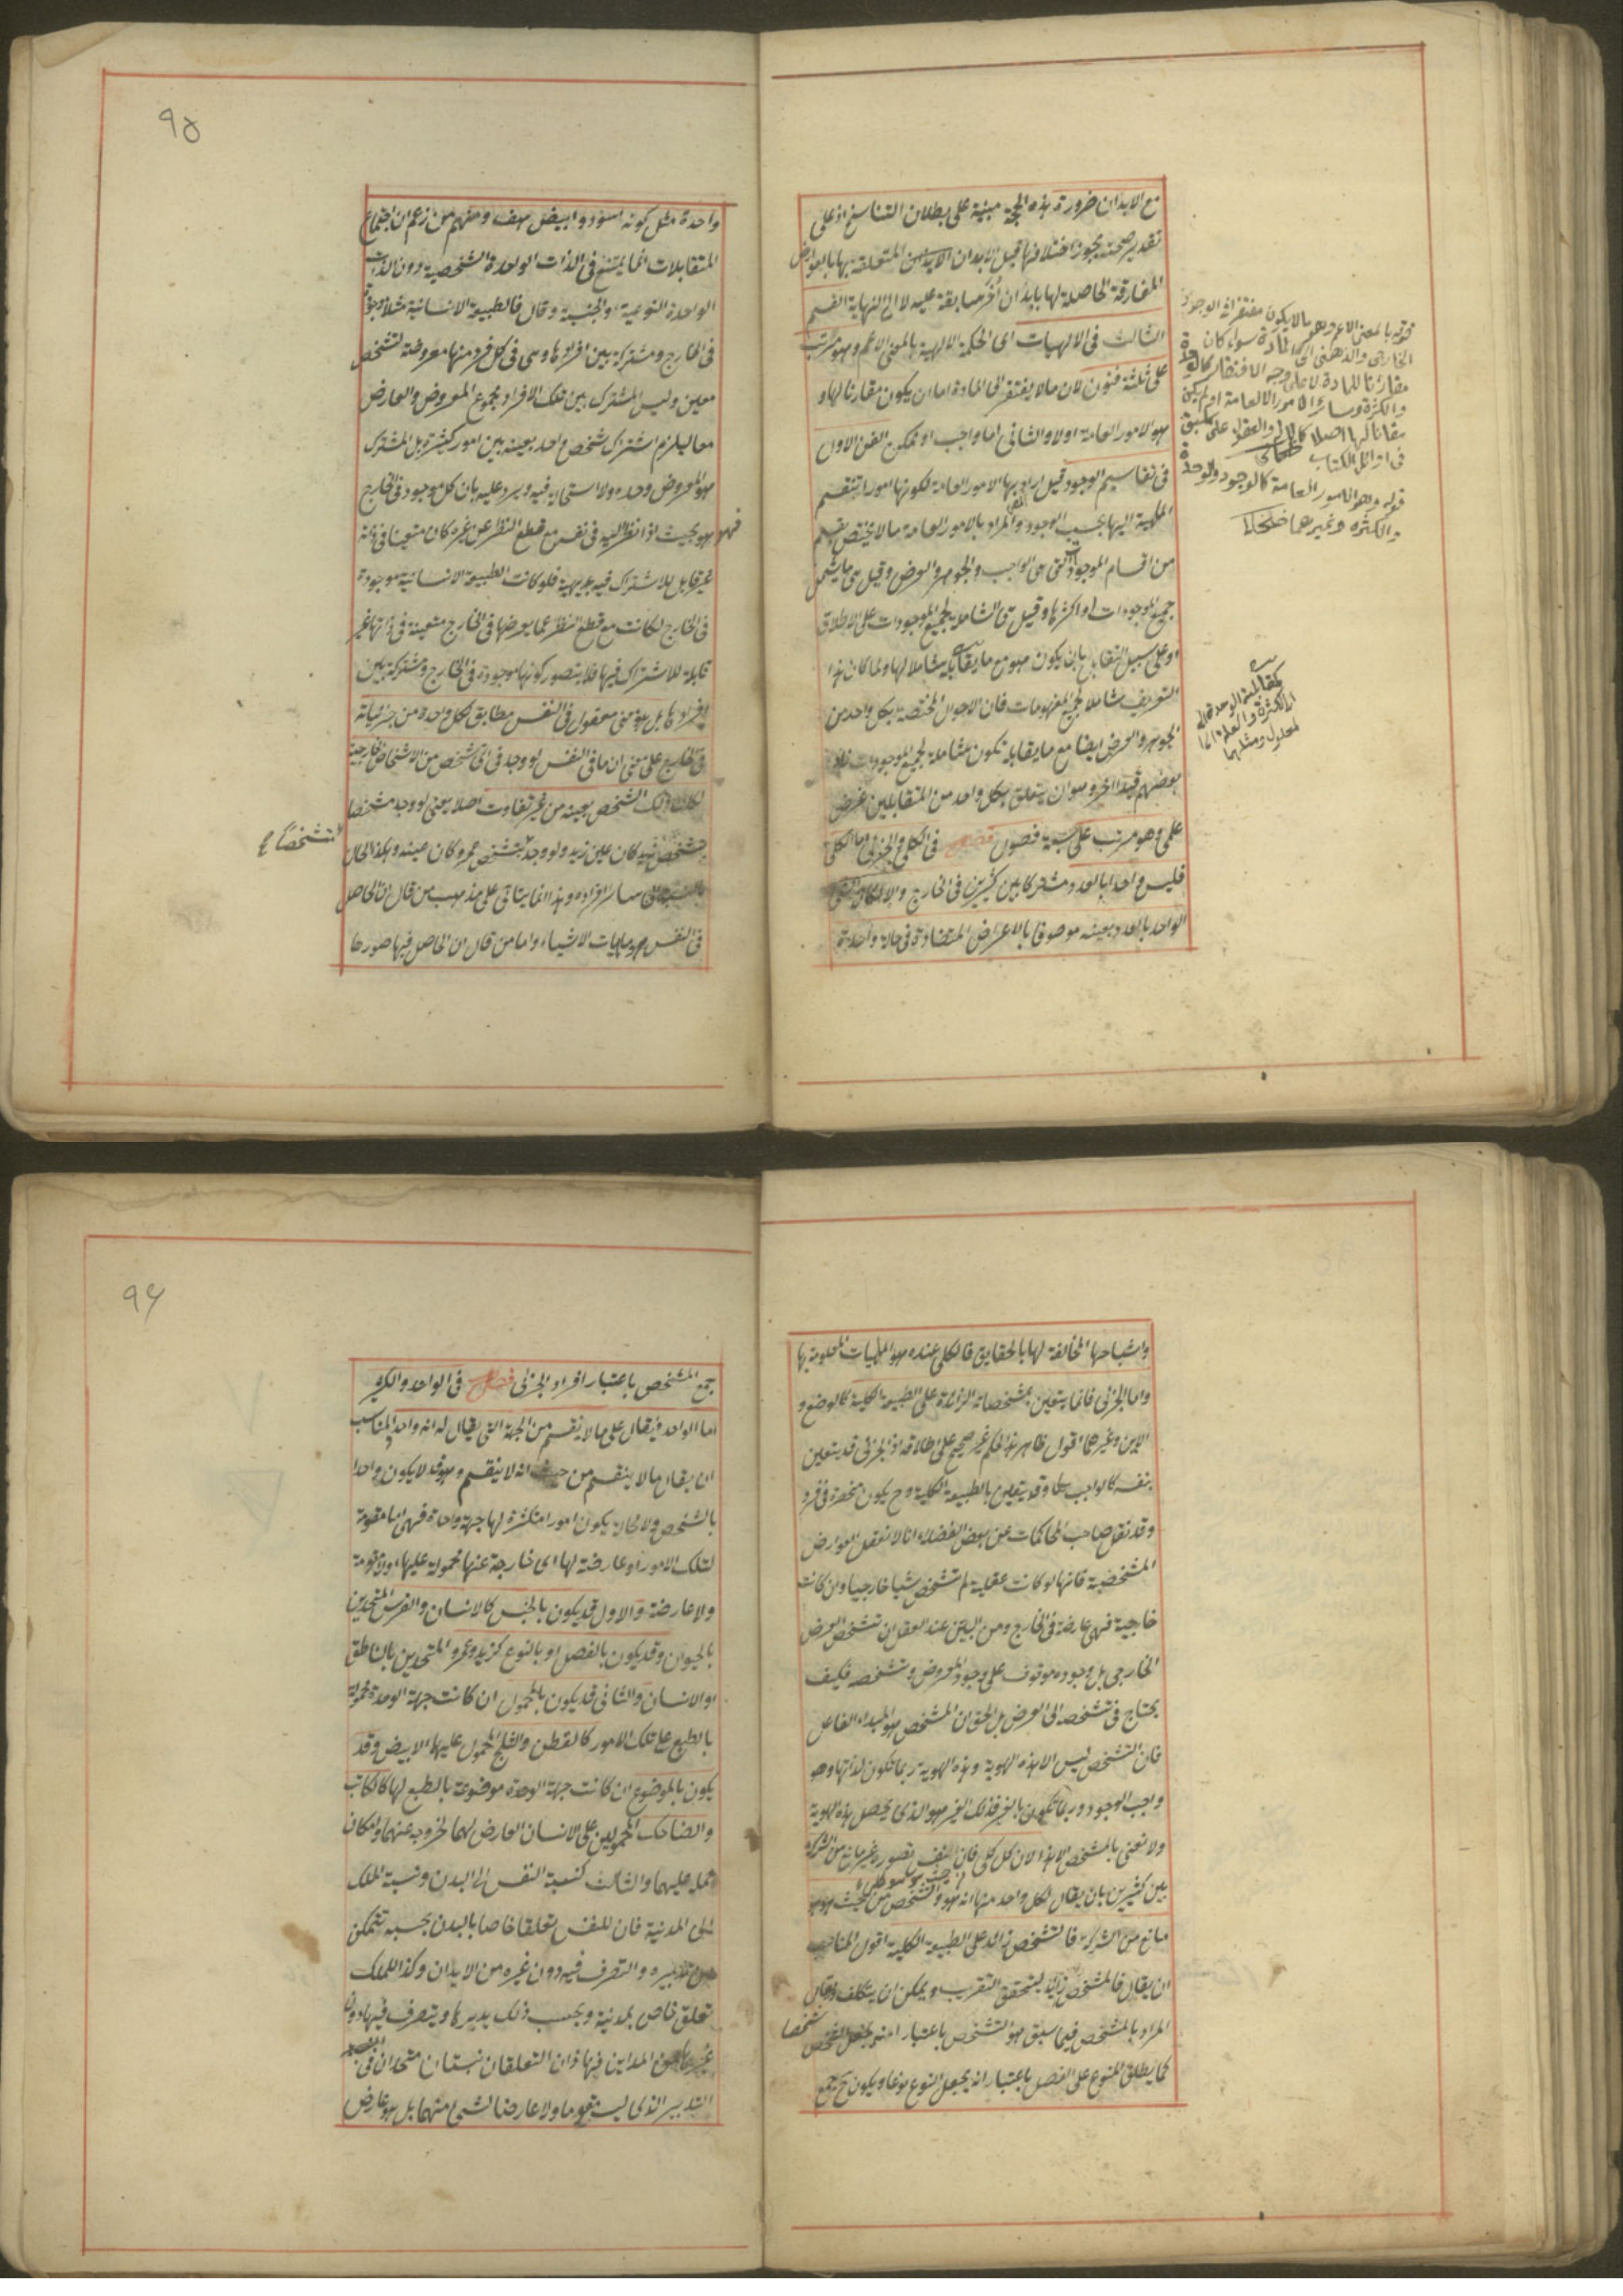 مع الابدان ضرورة هذه الحجة مبنية على بطلان التناسخ اذ على
تقدير صحته يجوز اختلافها قبل الابدان المتعلقة بها بالعوارض
المفارقة الحاصلة لها بابدان أخر سابقة عليه لا الى النهاية القسم
الثالث فى الالهيات اى الحكمة الالهية بالمعنى الاعم وهو مرتب
على ثلثة فنون لان ما لا يفتقر الى المادة اما ان يكون مقارنا لها و
هو الامور العامة اولا والثانى اما واجب او ممكن الفن الاول
فى تقاسيم الوجود قيل اراد بها الامور العامة لكونها امورا تنقسم
الماهية اليها بحسب الوجود والمراد بالامور العامة ما لا يختص بقسم
من اقسام الموجود التى هى الواجب والجوهر والعرض وقيل هى ما يشمل
جميع الموجودات او اكثرها وقيل هى الشاملة لجميع الموجودات على الاطلاق
او على سبيل التقابل بان يكون هو مع ما يقابله شاملا لها ولما كان هذا
التعريف شاملا لجميع المفهومات فان الاحوال المختصة بكل واحد من
الجوهر والعرض ايضا مع ما يقابله تكون شاملة لجميع الموجودات زاد
بعضهم قيدا اخر وهو ان يتعلق بكل واحد من المتقابلين غرض
علمى وهو مرتب على سبعة فصول فصل فى الكلى والجزئى اما الكلى
فليس واحدا بالعدد مشتركا بين كثيرين فى الخارج والا لكان الشئ
الواحد بالعدد بعينه موصوفا بالاعراض المتضادة فى حالة واحدة
قوله بالمعنى الاعم وهو ما لا يكون مفتقرا فى الوجود
الخارجى والذهنى الى المادة سواء كان
مقارنا للمادة لا على وجه الافتقار كالوحدة
والكثرة وسائر الامور العامة او لم يكن
مقارنا لها اصلا كالاله والعقول على ما سبق
فى اوائل الكتاب
قوله وهو الامور العامة كالوجود والوحدة
والكثرة وغيرهما
كمقابلة الوحدة
الكثرة والعلة
معلول ومثلهما
٩٥
واحدة مثل كونه اسود وابيض هف ومنهم من زعم ان اجتماع
المتقابلات انما يمتنع فى الذات الواحدة الشخصية دون الذات
الواحدة النوعية او الجنسية وقال فالطبيعة الانسانية مثلا موجودة
فى الخارج ومشتركة بين افرادها وهى فى كل فرد منها معروضة لتشخص
معين وليس المشترك بين تلك الافراد مجموع المعروض والعارض
معا ليلزم اشتراك شخص واحد بعينه بين امور كثيرة بل المشترك
هو المعروض وحده ولا استحالة فيه ويرد عليه بان كل موجود فى الخارج
فهو بحيث اذا نظر اليه فى نفسه مع قطع النظر عن غيره كان متعينا فى ذاته
غير قابل للاشتراك فيه بديهية فلو كانت الطبيعة الانسانية موجودة
فى الخارج لكانت مع قطع النظر عما يعرضها فى الخارج متعينة فى ذاتها غير
قابلة للاشتراك فيها فلا يتصور كونها موجودة فى الخارج ومشتركة بين
افرادها بل هو معنى معقول فى النفس مطابق لكل واحدة من جزئياته
فى الخارج على معنى ان ما فى النفس لو وجد فى اى شخص من الاشخاص الخارجية
لكان ذلك الشخص بعينه من غير تفاوت اصلا يعنى لو وجد متشخصا
بتشخص زيد كان عين زيد ولو وجد بتشخص عمرو كان عينه وهكذا الحال
بالنسبة الى سائر افراده وهذا انما يتاتى على مذهب من قال ان الحاصل
فى النفس هو ماهيات الاشياء واما من قال ان الحاصل فيها صورها
متشخصاً
واشباحها المخالفة لها بالحقايق فالكلى عنده هو الماهيات المعلومة بها
واما الجزئى فانما يتعين بمشخصاته الزائدة على الطبيعة الكلية كالوضع و
الاين وغيرهما اقول ظاهر هذا الحكم غير صحيح على اطلاقه اذ الجزئى قد يتعين
بنفسه كالواجب تعالى وقد يتعين بالطبيعة الكلية وح يكون منحصرة فى فرد
وقد نقل صاحب المحاكمات عن بعض الفضلاء انا لا نعقل العوارض
المشخصة فانها لو كانت عقلية لم تشخص شيئا خارجيا وان كانت
خارجية فهى عارضة فى الخارج ومن البين عند العقل ان تشخص العرض
الخارجى بل وجوده موقوف على وجود المعروض وتشخصه فكيف
يحتاج فى تشخصه الى العرض بل الحق ان المشخص هو المبداء الفاعل
فان التشخص ليس الا هذه الهوية وهذه الهوية ربما تكون لذاتها وهو
واجب الوجود وربما تكون بالغير فذلك الغير هو الذى يحصل هذه الهوية
ولا نعنى بالمشخص الا هذا لان كل كلى فان نفس تصوره غير مانع من الشركة
بين كثيرين بان يقال لكل واحد منها انه هو والشخص من حيث هو هو
مانع من الشركة فالتشخص زائد على الطبيعة الكلية اقول المناسب
ان يقال فالمشخص زائد ليتحقق التقريب ويمكن ان يتكلف ويقال
المراد بالتشخص فيما سبق هو التشخص باعتبار انه يجعل الشخص شخصا
كما يطلق المنوع على الفصل باعتبار انه يجعل النوع نوعا ويكون ح جمع
٩٦
جمع المشخص باعتبار افراد الجزئى فصل فى الواحد والكثير
اما الواحد فيقال على ما لا ينقسم من الجهة التى يقال له انه واحد والمناسب
ان يقال ما لا ينقسم من حيث انه لا ينقسم وهو قد لا يكون واحدا
بالشخص ولا محالة يكون امورا متكثرة لها جهة واحدة فهى اما مقومة
لتلك الامور او عارضة لها اى خارجة عنها محمولة عليها او لا مقومة
ولا عارضة والاول قد يكون بالجنس كالانسان والفرس المتحدين
بالحيوان وقد يكون بالفصل او بالنوع كزيد وعمرو المتحدين بالناطق
او الانسان والثانى قد يكون بالمحمول ان كانت جهة الوحدة محمولة
بالطبع على تلك الامور كالقطن والثلج المحمول عليهما الابيض وقد
يكون بالموضوع ان كانت جهة الوحدة موضوعة بالطبع لها كالكاتب
والضاحك المحمولين على الانسان العارض لهما لخروجه عنهما وامكان
حمله عليهما والثالث كنسبة النفس الى البدن ونسبة الملك
الى المدينة فان للنفس تعلقا خاصا بالبدن بحسبه تتمكن
من تدبيره والتصرف فيه دون غيره من الابدان وكذا للملك
تعلق خاص بمدينة وبحسب ذلك يدبرها ويتصرف فيها دون
غيرها من المداين فهاذان التعلقان نسبتان متحدان فى
التدبير الذى ليس مقوما ولا عارضا لشئ منهما بل هو عارض